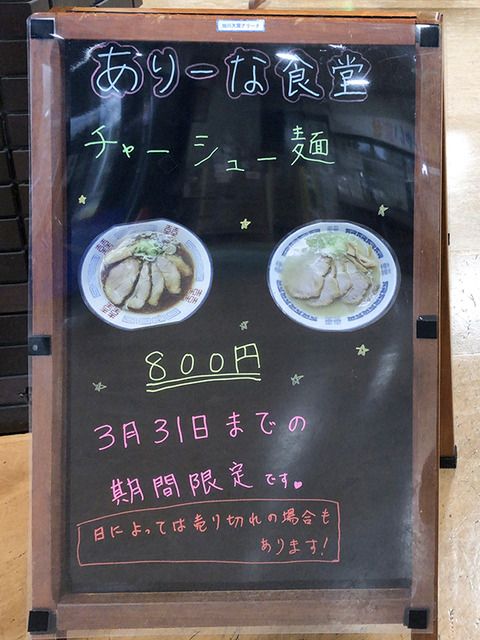 旭川大雪アリーナ
ありーな食堂
チャーシュー麺
800円
3月31日までの
期間限定です♥
日によっては売り切れの場合も
あります!